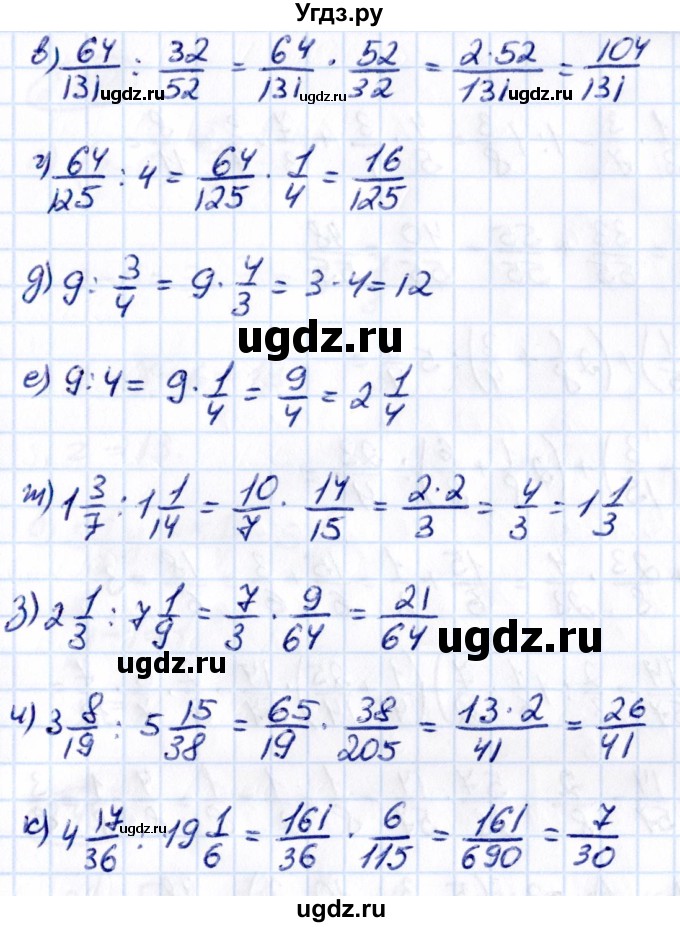 Угдз.ру
в) 64/131 : 32/52 = 64/131 · 52/32 = 2·52/131 = 104/131
ugdz.ru ugdz.ru ugdz.ru ugdz.ru
г) 64/125 : 4 = 64/125 · 1/4 = 16/125
д) 9 : 3/4 = 9 · 4/3 = 3·4 = 12
ugdz.ru
ugdz.ru
е) 9 : 4 = 9 · 1/4 = 9/4 = 2 1/4
ж) 1 3/7 : 1 1/14 = 10/7 · 14/15 = 2·2/3 = 4/3 = 1 1/3
з) 2 1/3 : 7 1/9 = 7/3 · 9/64 = 21/64
ugdz.ru
ugdz.ru
и) 3 8/19 : 5 15/38 = 65/19 · 38/205 = 13·2/41 = 26/41
к) 4 17/36 : 19 1/6 = 161/36 · 6/115 = 161/690 = 7/30
ugdz.ru
ugdz.ru